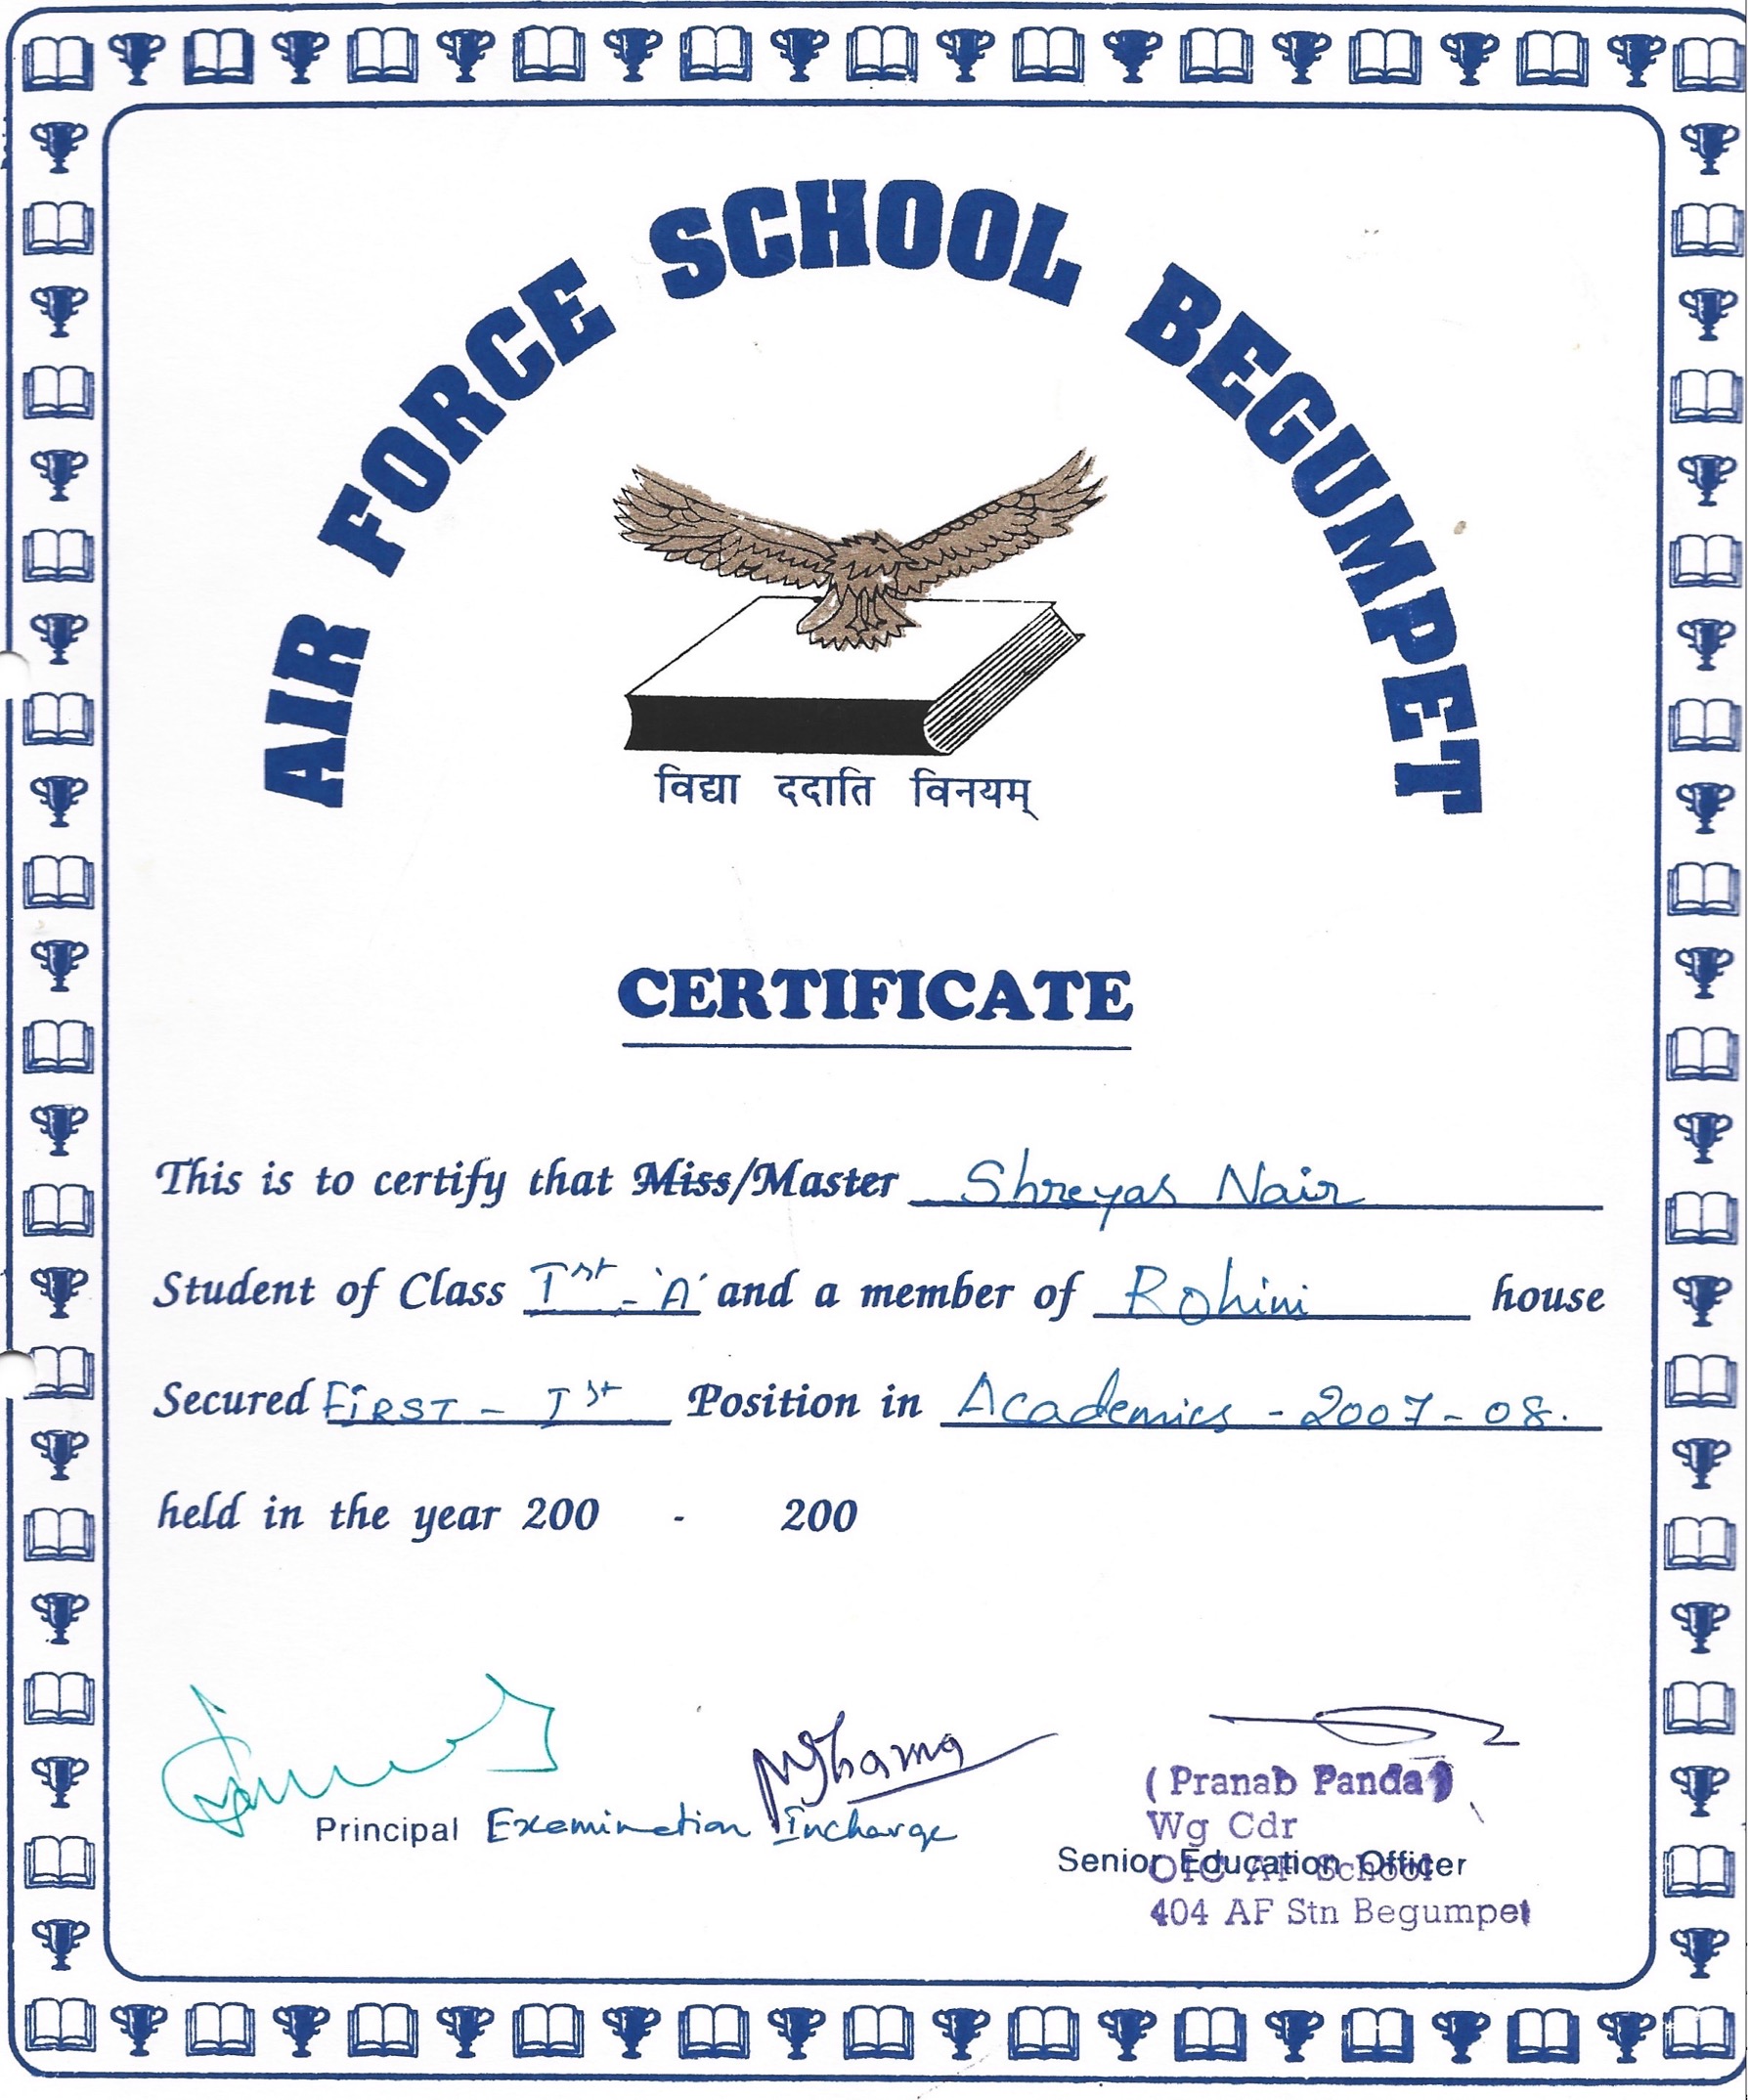 AIR FORCE SCHOOL BEGUMPET
विद्या ददाति विनयम्
CERTIFICATE
This is to certify that Miss/Master Shreyas Nair
Student of Class Ist - 'A' and a member of Rohini house
Secured FIRST - Ist Position in Academics - 2007 - 08.
held in the year 200 - 200
(Pranab Panda)
Wg Cdr
Principal Examination Incharge
Senior Education Officer
OIC AF School
404 AF Stn Begumpet